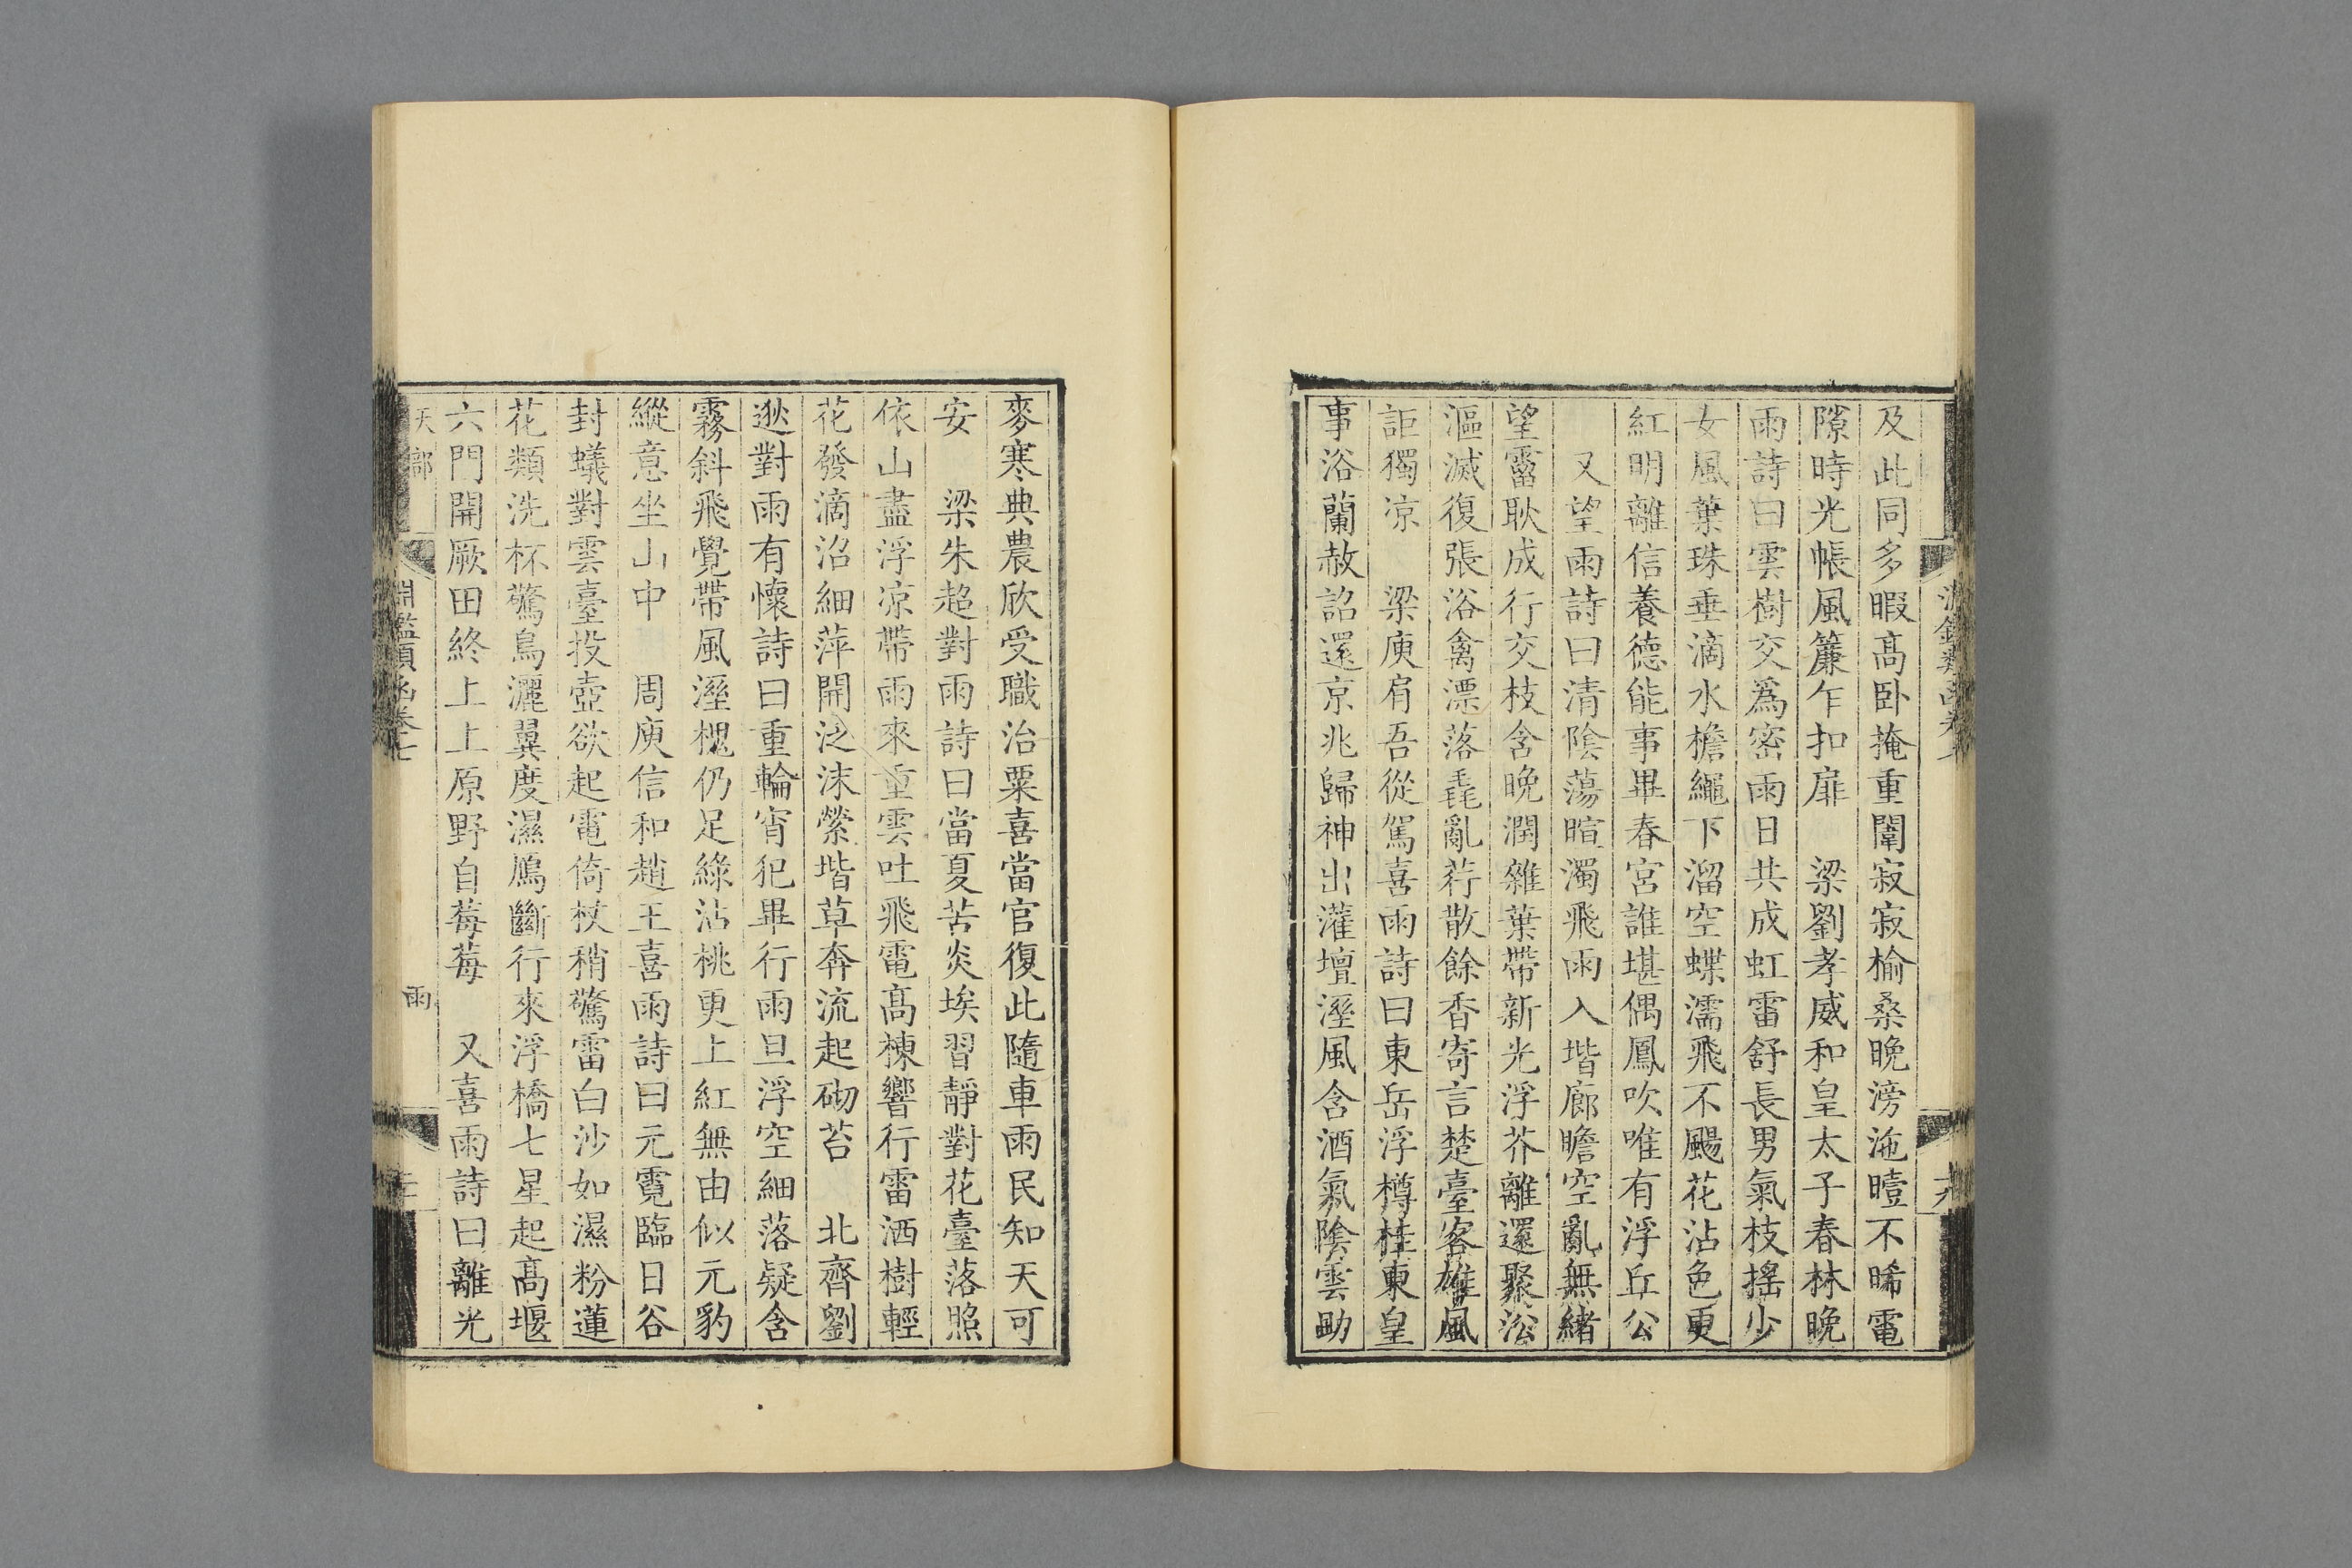 及此同多暇高卧掩重闈寂寂榆桑晚滂沲曀不晞電
隙時光帳風簾乍扣扉　梁劉孝威和皇太子春林晚
雨詩曰雲樹交爲密雨日共成虹雷舒長男氣枝搖少
女風葉珠垂滴水檐繩下溜空蝶濡飛不颺花沾色更
紅明離信養德能事畢春宮誰堪偶鳳吹唯有浮丘公
又望雨詩曰清陰蕩暄濁飛雨入堦廊瞻空亂無緒
望霤耿成行交枝含晚潤雜葉帶新光浮芥離還聚沿
漚滅復張浴禽漂落毳亂荇散餘香寄言楚臺客雄風
詎獨凉　梁庾肩吾從駕喜雨詩曰東岳浮樽桂東皇
事浴蘭赦詔還京兆歸神出灌壇溼風含酒氣陰雲助
麥寒典農欣受職治粟喜當官復此隨車雨民知天可
安　梁朱超對雨詩曰當夏苦炎埃習靜對花臺落照
依山盡浮凉帶雨來重雲吐飛電高棟響行雷洒樹輕
花發滴沼細萍開泛沫縈堦草奔流起砌苔　北齊劉
逖對雨有懷詩曰重輪宵犯畢行雨旦浮空細落疑含
霧斜飛覺帶風溼槐仍足綠沾桃更上紅無由似元豹
縱意坐山中　周庾信和趙王喜雨詩曰元霓臨日谷
封蟻對雲臺投壺欲起電倚杖稍驚雷白沙如濕粉蓮
花類洗杯驚鳥灑翼度濕鴈斷行來浮橋七星起高堰
六門開厥田終上上原野自莓莓　又喜雨詩曰離光
天部
淵鑑類函卷七
雨